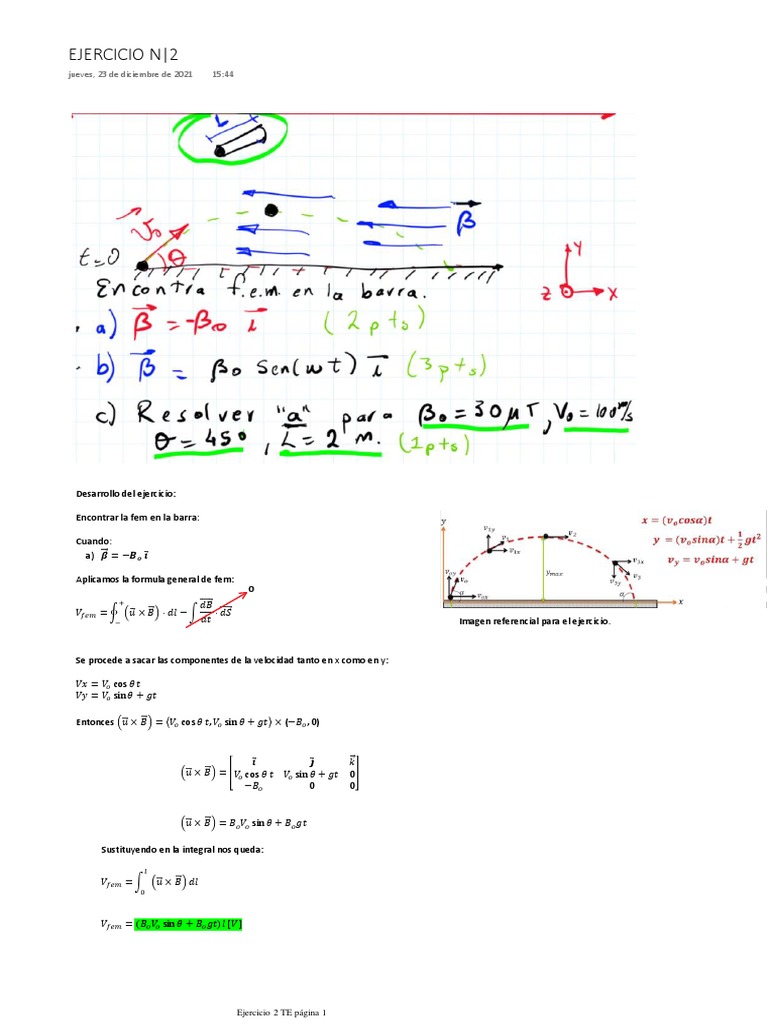 EJERCICIO N|2
jueves, 23 de diciembre de 2021 15:44
L
V₀
θ
t=0
β⃗
Y
Z
X
Encontra f.e.m. en la barra.
a) β⃗ = -β₀ i⃗ (2pts)
b) β⃗ = β₀ Sen(wt) i⃗ (3pts)
c) Resolver "a" para β₀ = 30 μT, V₀ = 100 m/s
θ = 45°, L = 2 m. (1pts)
Desarrollo del ejercicio:
Encontrar la fem en la barra:
Cuando:
a) β⃗ = −Bₒ ı⃗
Aplicamos la formula general de fem:
V_fem = ∮₋⁺ (u⃗ × B⃗) · dl − ∫ dB⃗/dt · dS⃗ 0
y
x
v₀y
v₀
v₀x
α
v₁y
v₁
v₁x
y_max
v₂
v₃x
v₃y
v₃
α
x = (vₒcosα)t
y = (vₒsinα)t + ½gt²
v_y = vₒsinα + gt
Imagen referencial para el ejercicio.
Se procede a sacar las componentes de la velocidad tanto en x como en y:
Vx = Vₒ cos θ t
Vy = Vₒ sin θ + gt
Entonces (u⃗ × B⃗) = (Vₒ cos θ t, Vₒ sin θ + gt) × (−Bₒ, 0)
ı⃗ ȷ⃗ k⃗
(u⃗ × B⃗) = [Vₒ cos θ t Vₒ sin θ + gt 0]
−Bₒ 0 0
(u⃗ × B⃗) = BₒVₒ sin θ + Bₒgt
Sustituyendo en la integral nos queda:
V_fem = ∫₀ˡ (u⃗ × B⃗) dl
V_fem = (BₒVₒ sin θ + Bₒgt) l [V]
Ejercicio 2 TE página 1